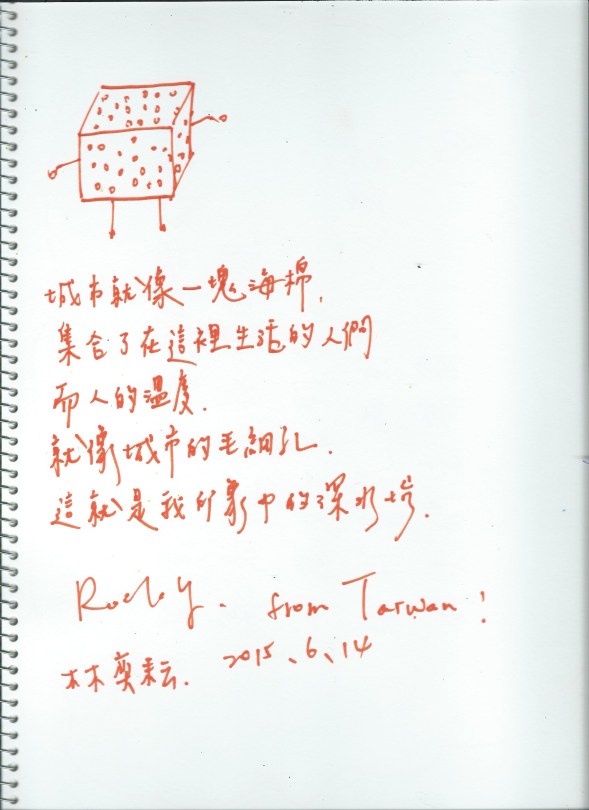 城市就像一塊海棉,
集合了在這裡生活的人們
而人的溫度.
就像城市的毛細孔.
這就是我印象中的深水埗.
Rocky. from Taiwan!
林奕耘. 2015、6、14